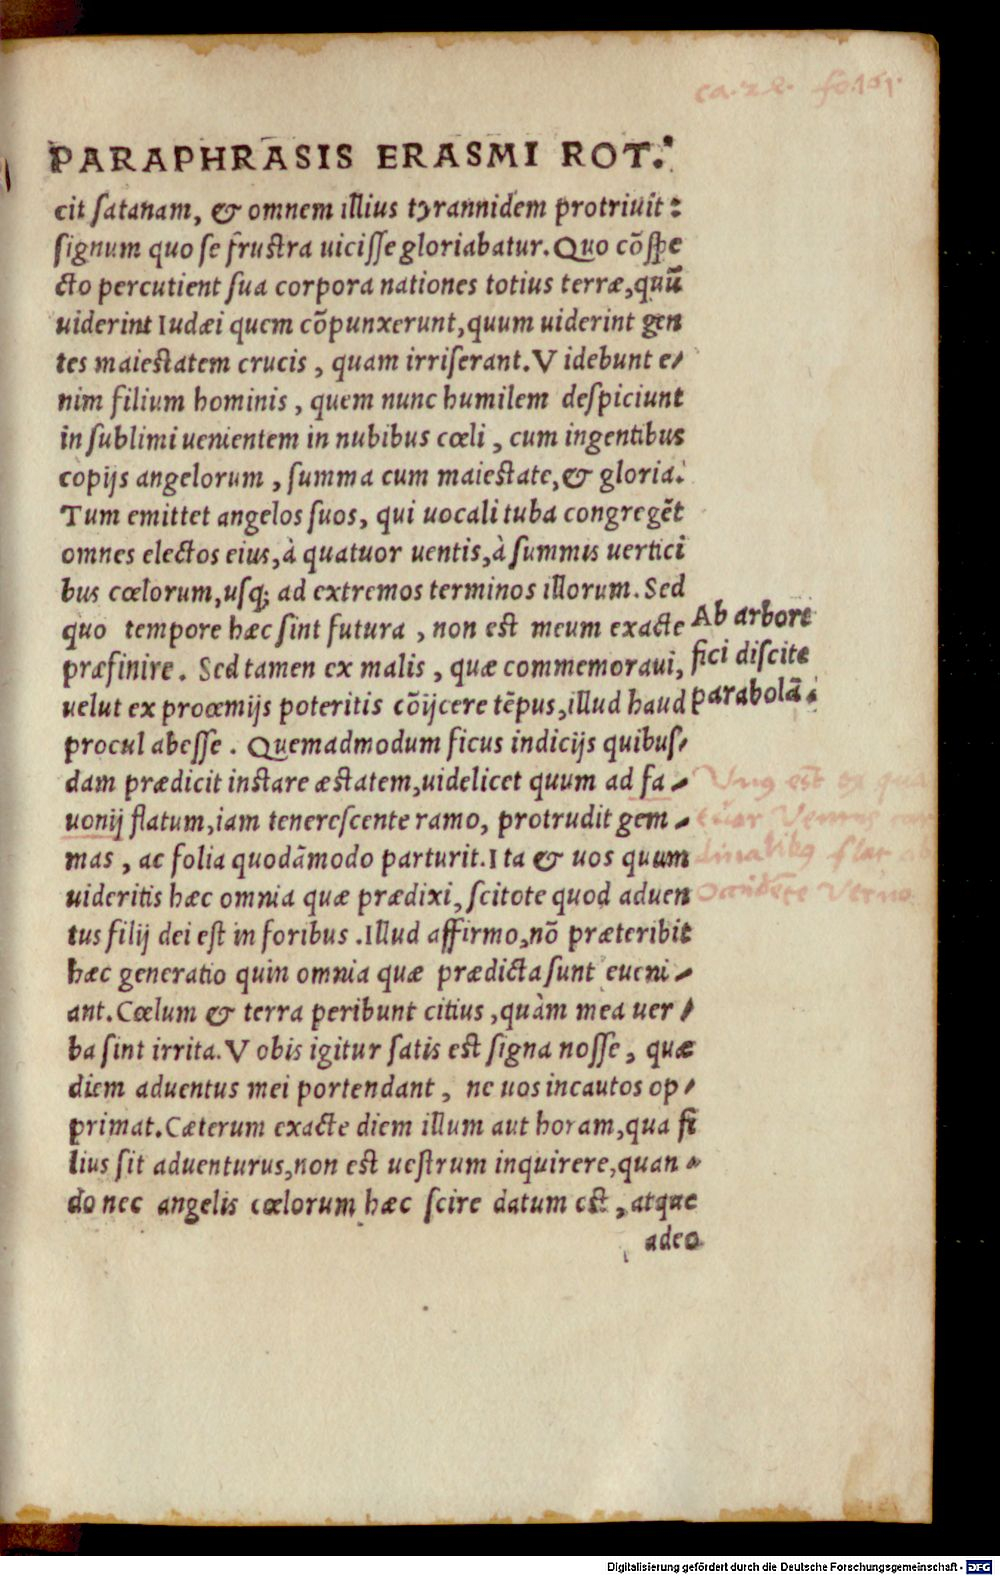 ca. 2e. fo. 161.
PARAPHRASIS ERASMI ROT.
cit satanam, & omnem illius tyrannidem protriuit:
signum quo se frustra uicisse gloriabatur. Quo cõspe
cto percutient sua corpora nationes totius terræ, quũ
uiderint Iudæi quem cõpunxerunt, quum uiderint gen
tes maiestatem crucis, quam irriserant. Videbunt e/
nim filium hominis, quem nunc humilem despiciunt
in sublimi uenientem in nubibus cœli, cum ingentibus
copijs angelorum, summa cum maiestate, & gloria.
Tum emittet angelos suos, qui uocali tuba congregẽt
omnes electos eius, à quatuor uentis, à summis uertici
bus cœlorum, usq; ad extremos terminos illorum. Sed
quo tempore hæc sint futura, non est meum exacte
præfinire. Sed tamen ex malis, quæ commemoraui,
uelut ex proœmijs poteritis cõijcere tẽpus, illud haud
procul abesse. Quemadmodum ficus indicijs quibus/
dam prædicit instare æstatem, uidelicet quum ad fa/
uonij flatum, iam tenerescente ramo, protrudit gem/
mas, ac folia quodãmodo parturit. Ita & uos quum
uideritis hæc omnia quæ prædixi, scitote quod aduen
tus filij dei est in foribus. Illud affirmo, nõ præteribit
hæc generatio quin omnia quæ prædicta sunt eueni/
ant. Cœlum & terra peribunt citius, quàm mea uer/
ba sint irrita. Vobis igitur satis est signa nosse, quæ
diem aduentus mei portendant, ne uos incautos op/
primat. Cæterum exacte diem illum aut horam, qua fi
lius sit aduenturus, non est uestrum inquirere, quan/
do nec angelis cœlorum hæc scire datum est, atque
adeo
Ab arbore
fici discite
parabolã.
Vnus est ex qua
tuor Ventis car
dinalibus flat ab
Occidẽte Verno
Digitalisierung gefördert durch die Deutsche Forschungsgemeinschaft - DFG